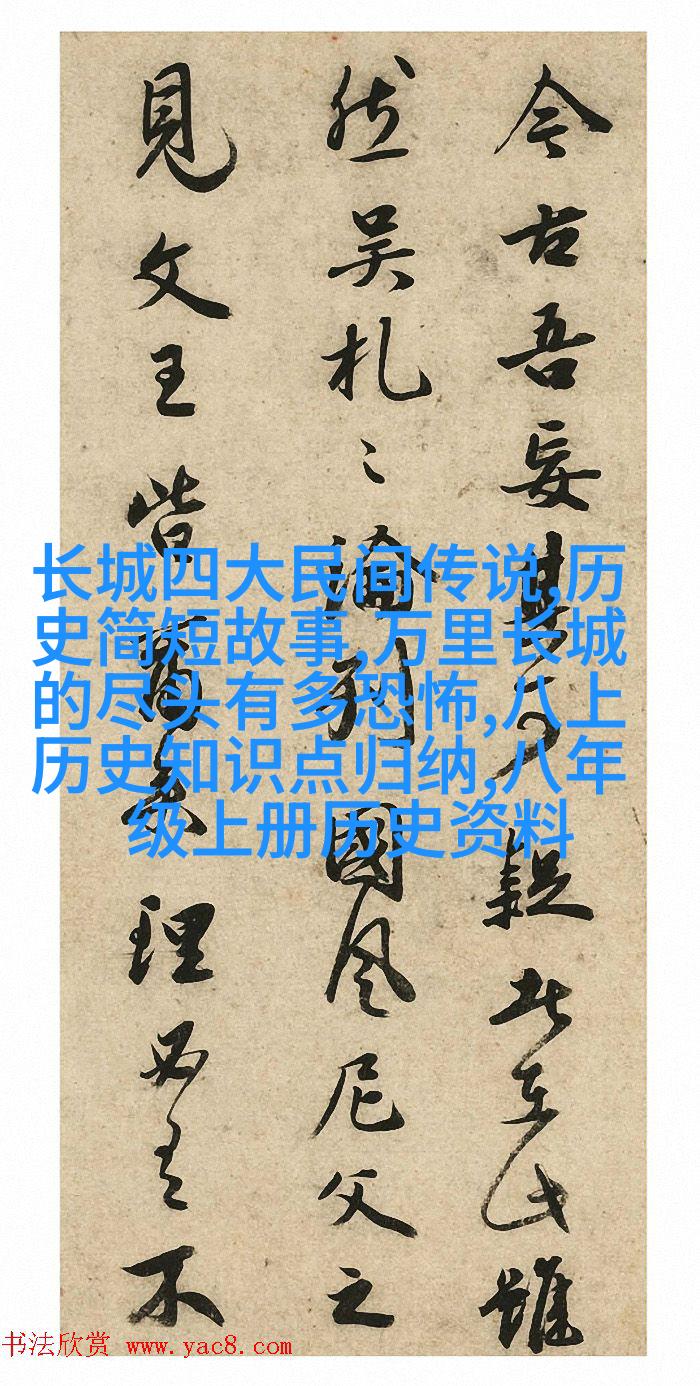 今古吾妄其至此雖
然吴札〻論列國風尼父之
見文王皆理必有不
长城四大民间传说,历
史简短故事,万里长城
的尽头有多恐怖,八上
历史知识点归纳,八年
级上册历史资料
书法欣赏 www.yac8.com